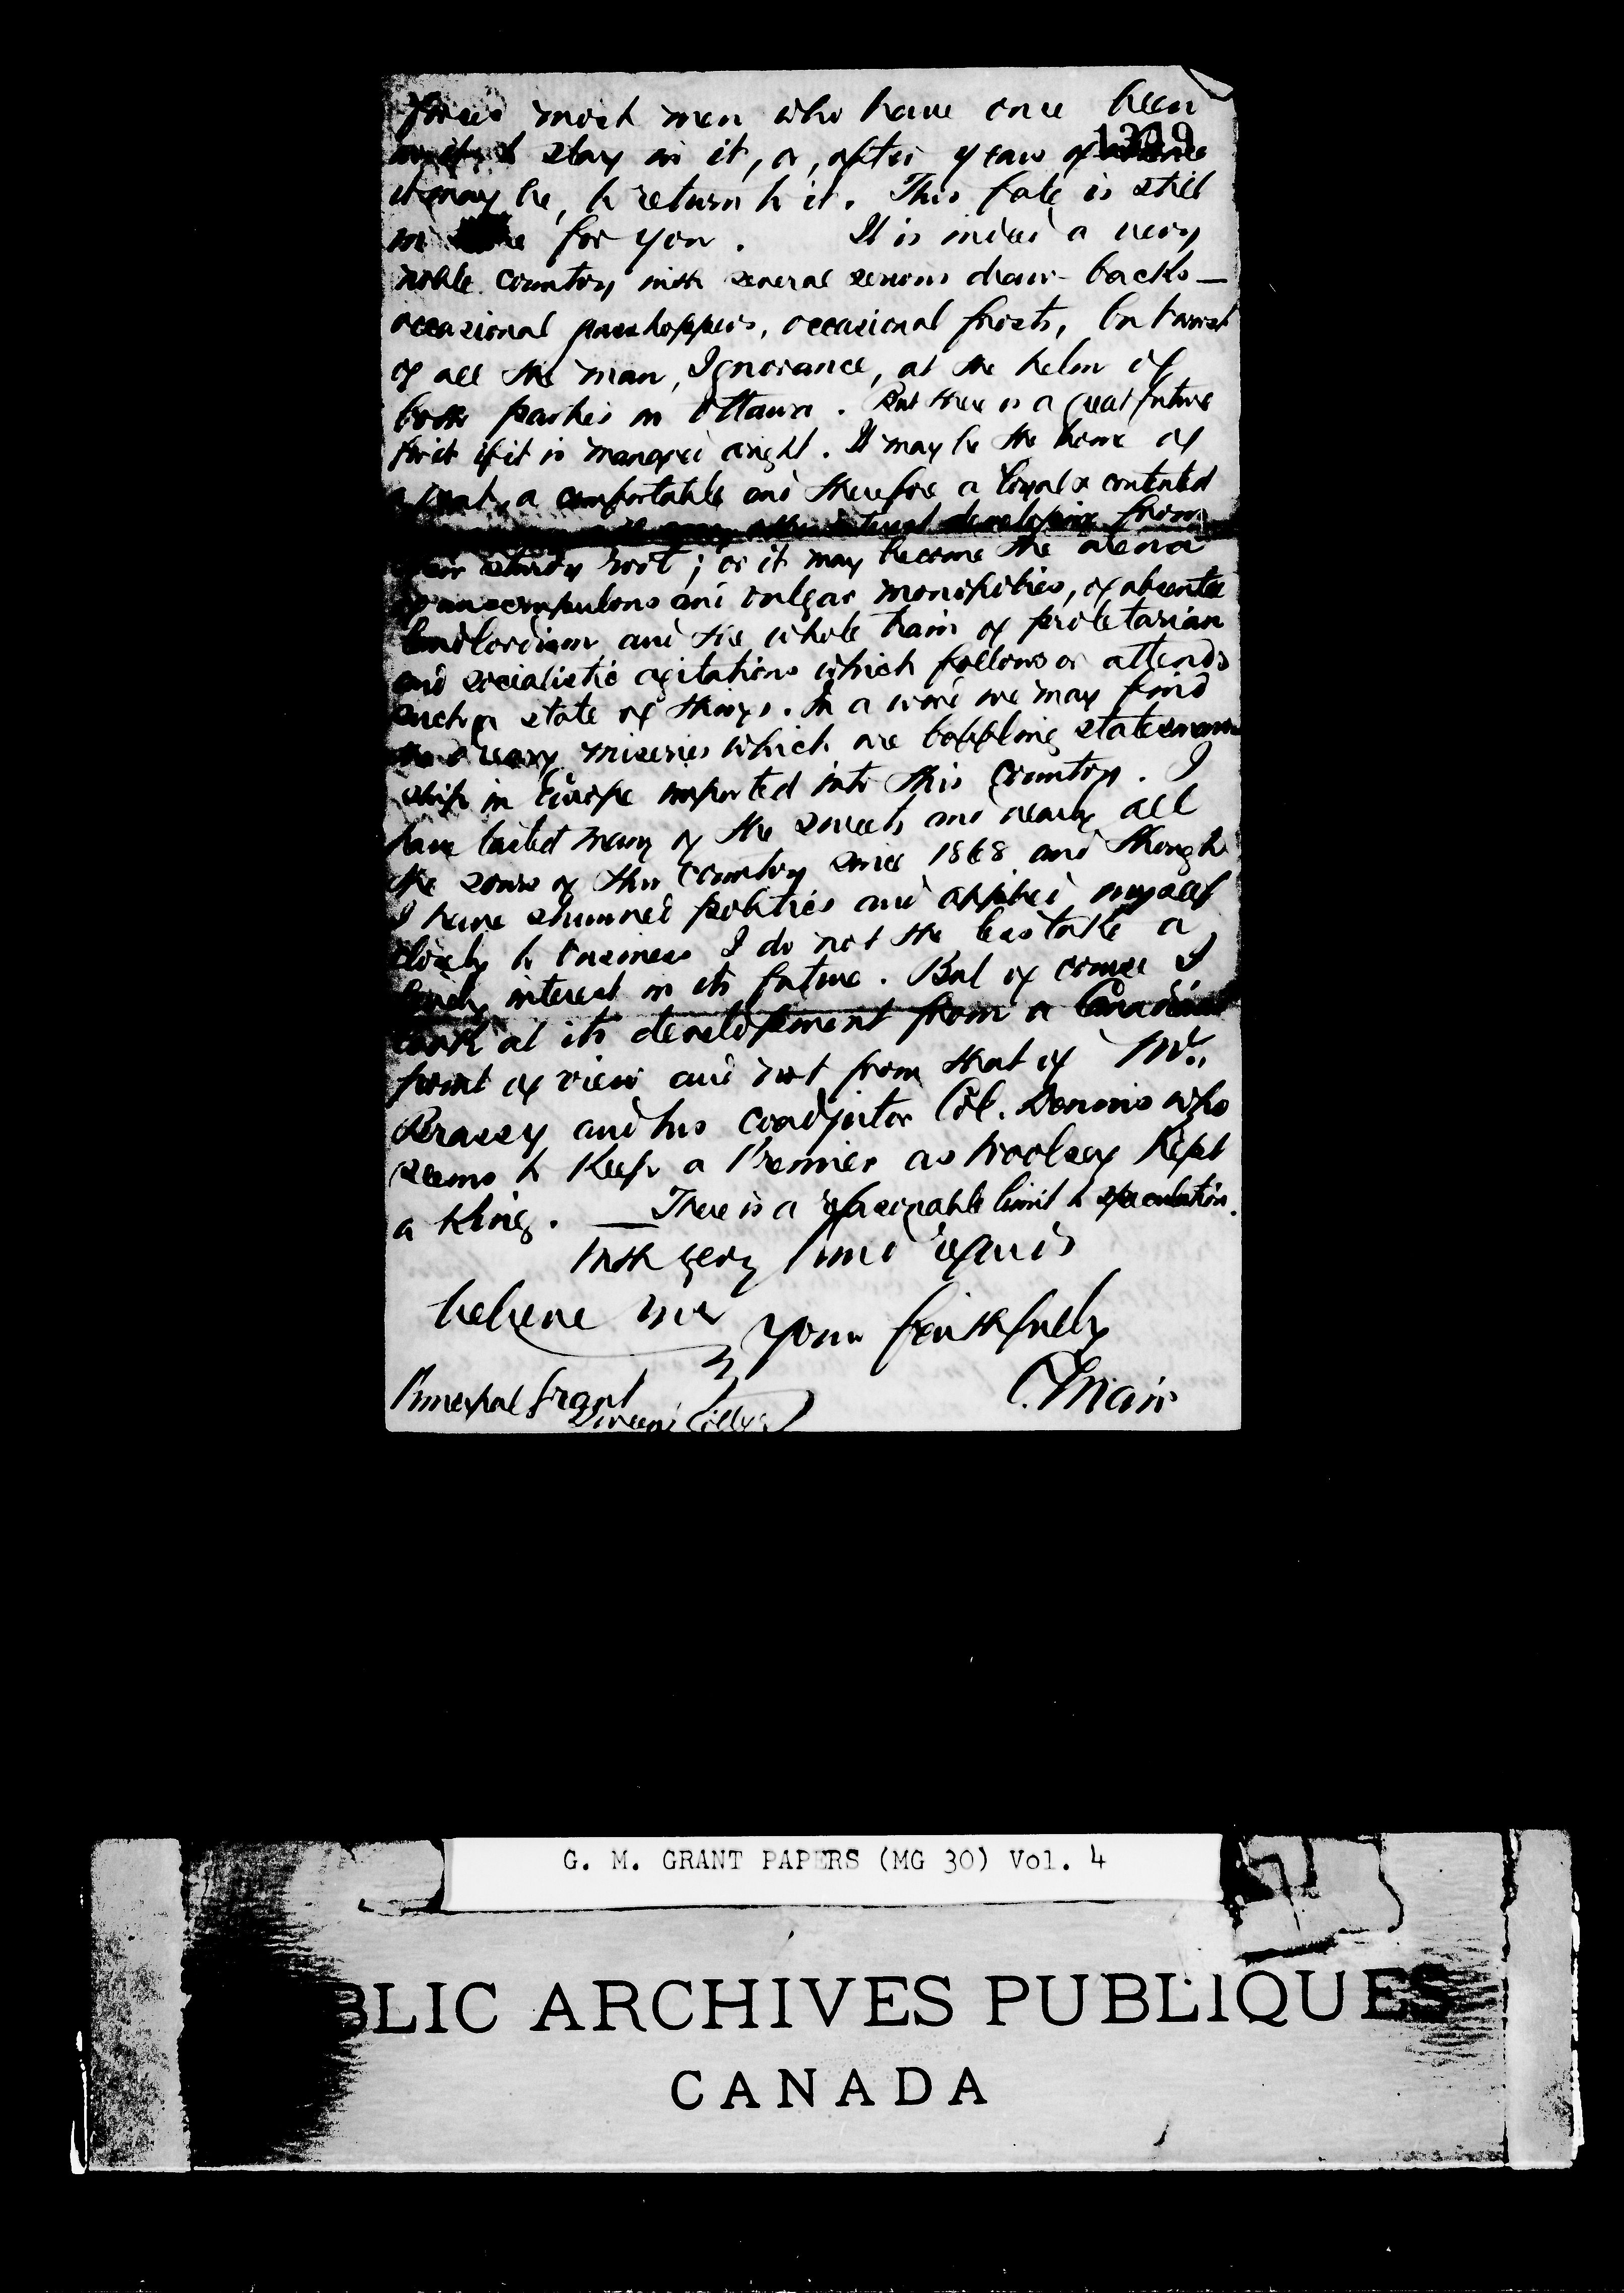 forces most men who have once been
in it to stay in it, or, after years of
it may be, to return to it. This fate is still
in for you. It is indeed a very
noble country with several serious draw-backs—
occasional grasshoppers, occasional frosts, but worst
of all the man, Ignorance, at the helm of
both parties in Ottawa. But there is a great future
for it if it is managed aright. It may be the home of
a great, a comfortable and therefore a loyal & contented
developing from
sturdy root; or it may become the arena
of unscrupulous and vulgar monopolies, of absentee
landlordism and the whole train of proletarian
and socialistic agitations which follows or attends
such a state of things. In a word we may find
the very miseries which are baffling statesman-
ship in Europe imported into this country. I
have tasted many of the sweets and nearly all
the sours of this country since 1868 and though
I have shunned politics and applied myself
closely to business I do not the less take a
lively interest in its future. But of course I
look at its development from a Canadian
point of view and not from that of Mr.
Brassey and his coadjutor Col. Dennis who
seems to keep a Premier as Woolsey kept
a King. —There is a reasonable limit to speculation.
With very kind regards
believe me
Yours faithfully
C. Mair
Principal Grant
Queen's College
1319
G. M. GRANT PAPERS (MG 30) Vol. 4
BLIC ARCHIVES PUBLIQUES
CANADA